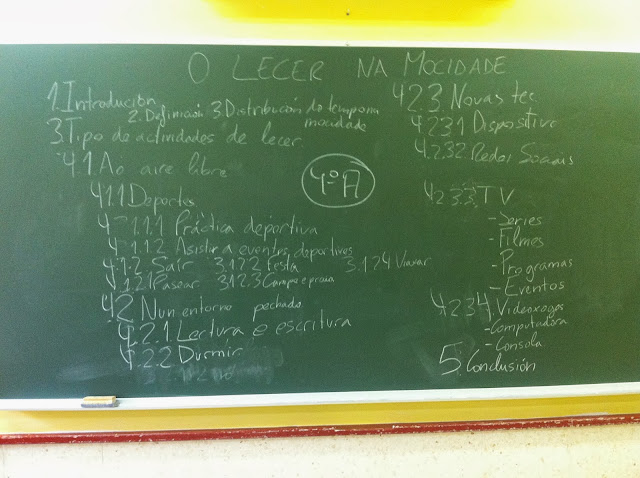 O LECER NA MOCIDADE
1. Introdución
2. Definición 3. Distribución do tempo na
mocidade
3. Tipo de actividades de lecer
4.1. Ao aire libre
4.1.1 Deportes
4.1.1.1 Práctica deportiva
4.1.1.2 Asistir a eventos deportivos
4.1.2 Saír 3.1.2.2 Festa 3.1.2.4 Viaxar
4.1.2.1 Pasear 3.1.2.3 Campo e praia
4.2 Nun entorno pechado
4.2.1 Lectura e escritura
4.2.2 Durmir
4ºA
4.2.3 Novas tec
4.2.3.1 Dispositivo
4.2.3.2 Redes Sociais
4.2.3.3. TV
- Series
- Filmes
- Programas
- Eventos
4.2.3.4 Videoxogos
- Computadora
- Consola
5. Conclusión